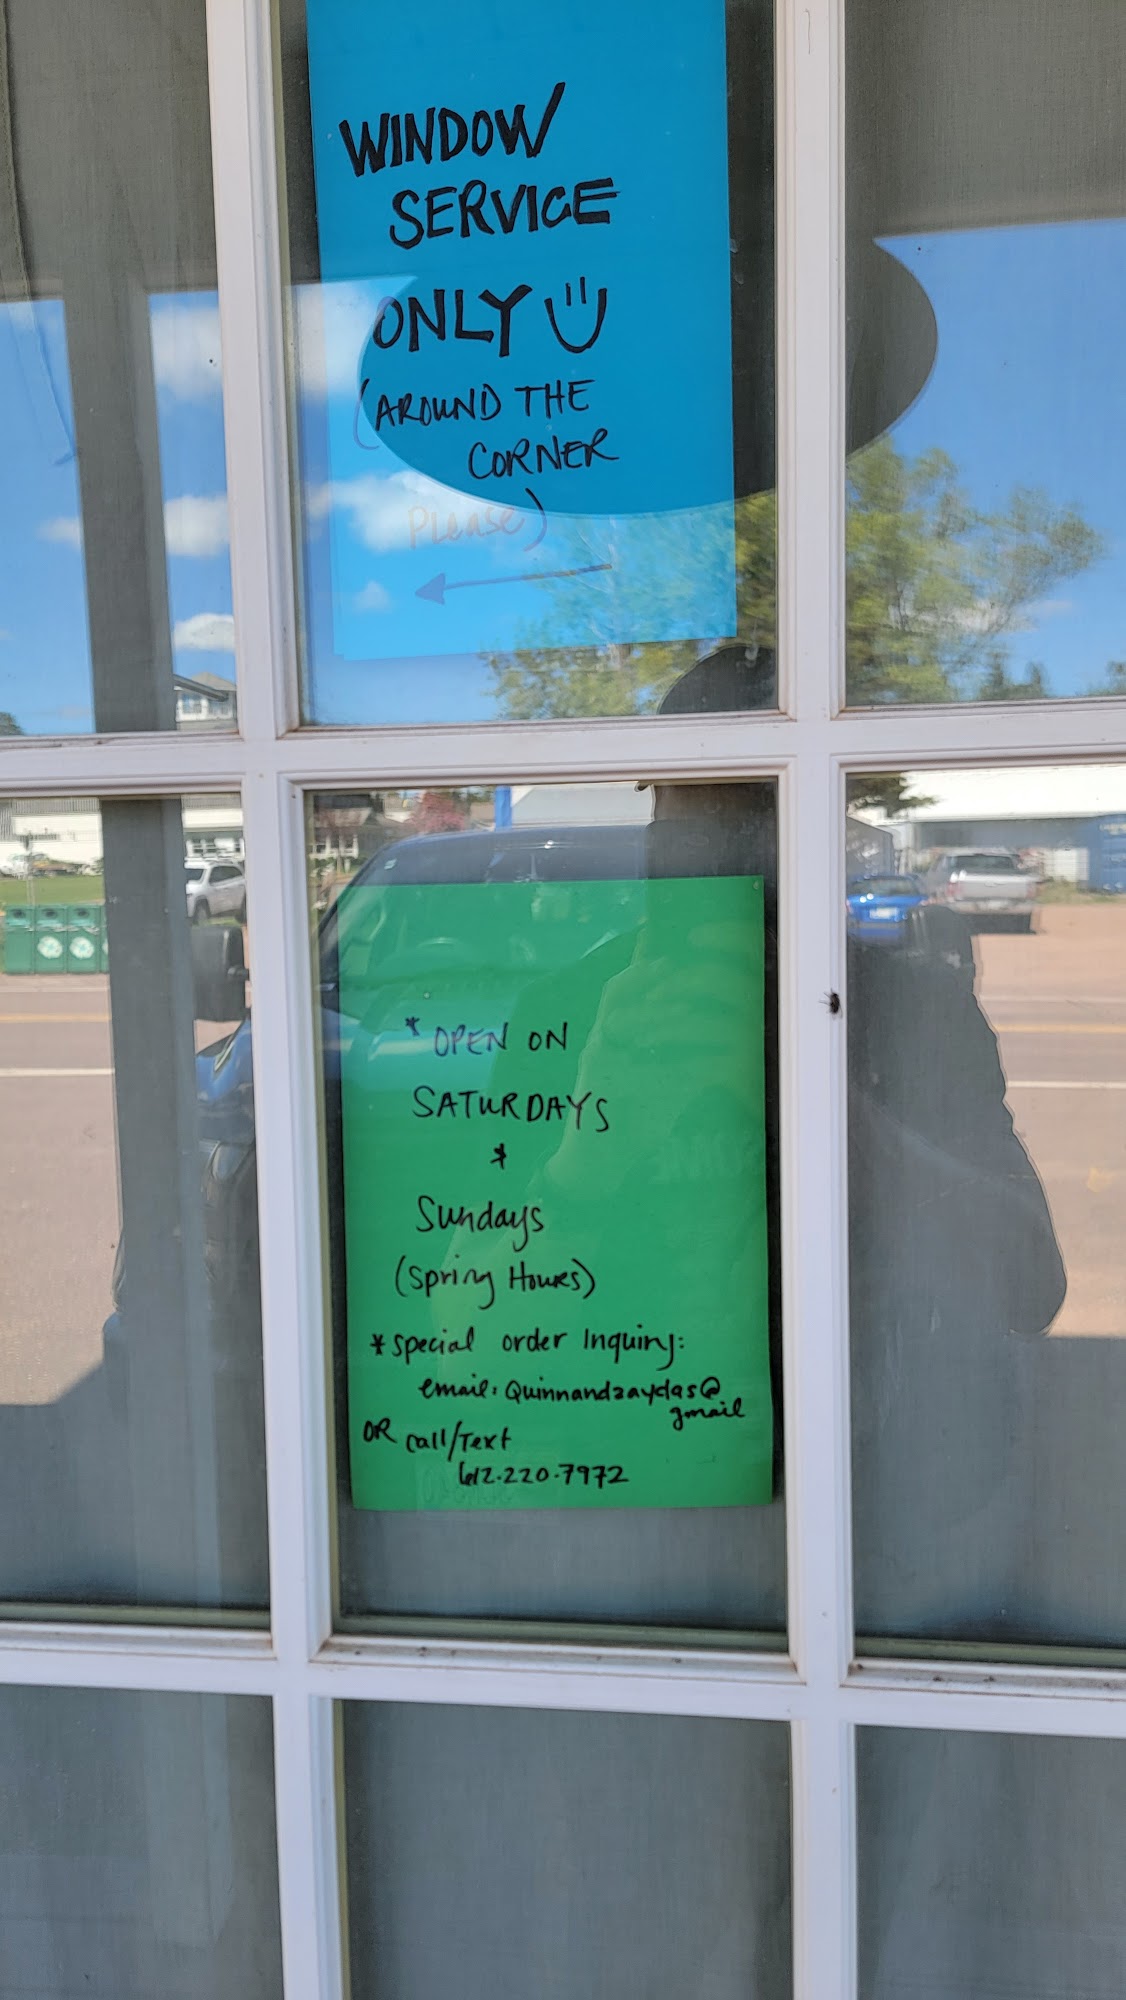 WINDOW
SERVICE
ONLY
(AROUND THE
CORNER
Please)
* OPEN ON
SATURDAYS
*
Sundays
(Spring Hours)
*special order Inquiry:
email: Quinnandzaydas@
gmail
OR call/Text
612.220.7972